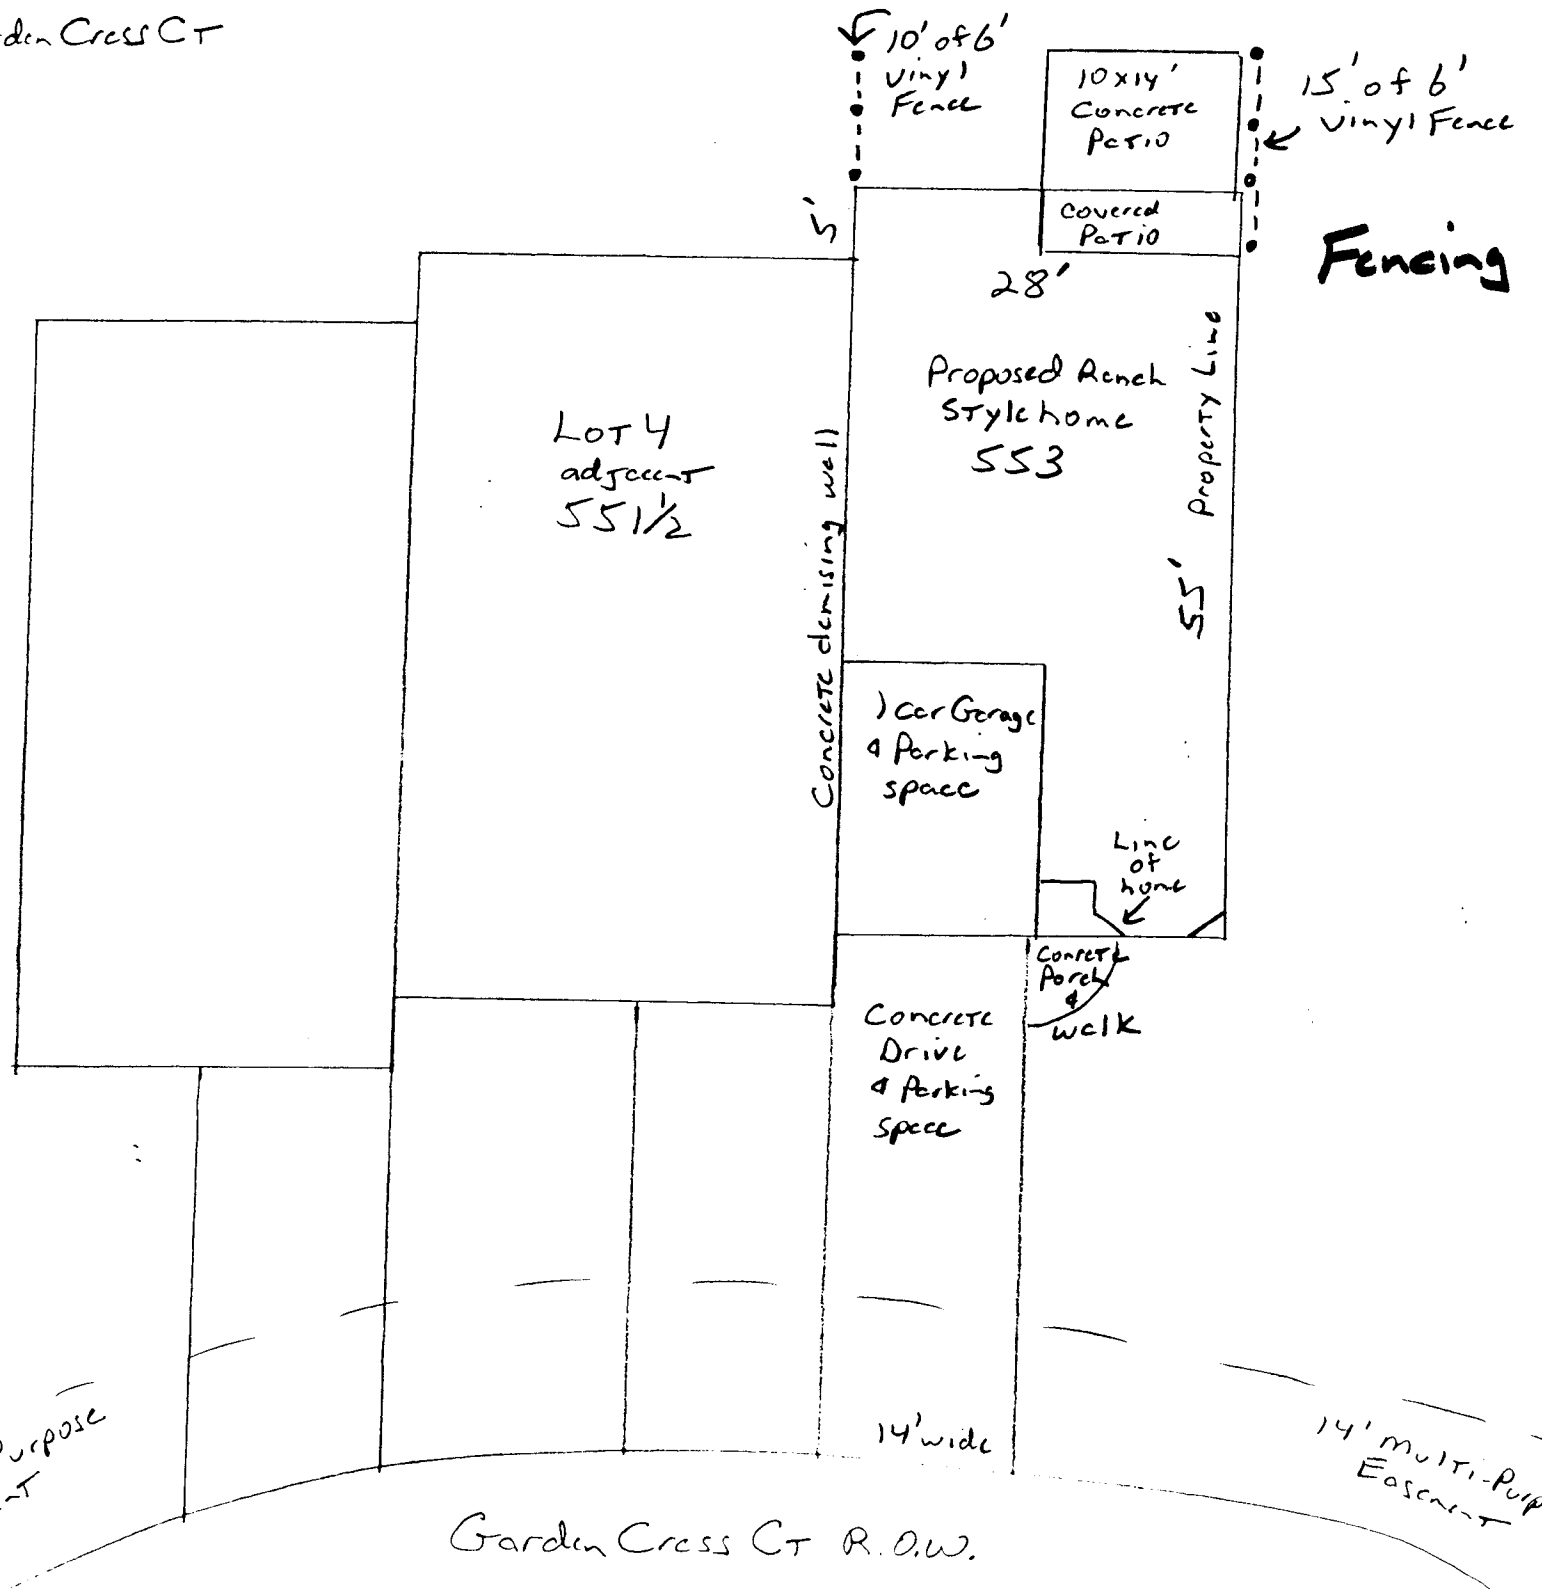 den Cress CT
10' of 6'
vinyl
Fence
10x14'
Concrete
Patio
15' of 6'
vinyl Fence
5'
Covered
Patio
Fencing
28'
Proposed Ranch
Style home
553
Property Line
55'
LOT 4
adjacent
551 1/2
Concrete demising wall
1 car Garage
& Parking
space
Line
of
home
Conrete
Porch
&
walk
Concrete
Drive
& Parking
space
14' wide
urpose
nT
14' Multi-Purp
Easement
Garden Cress CT R.O.W.